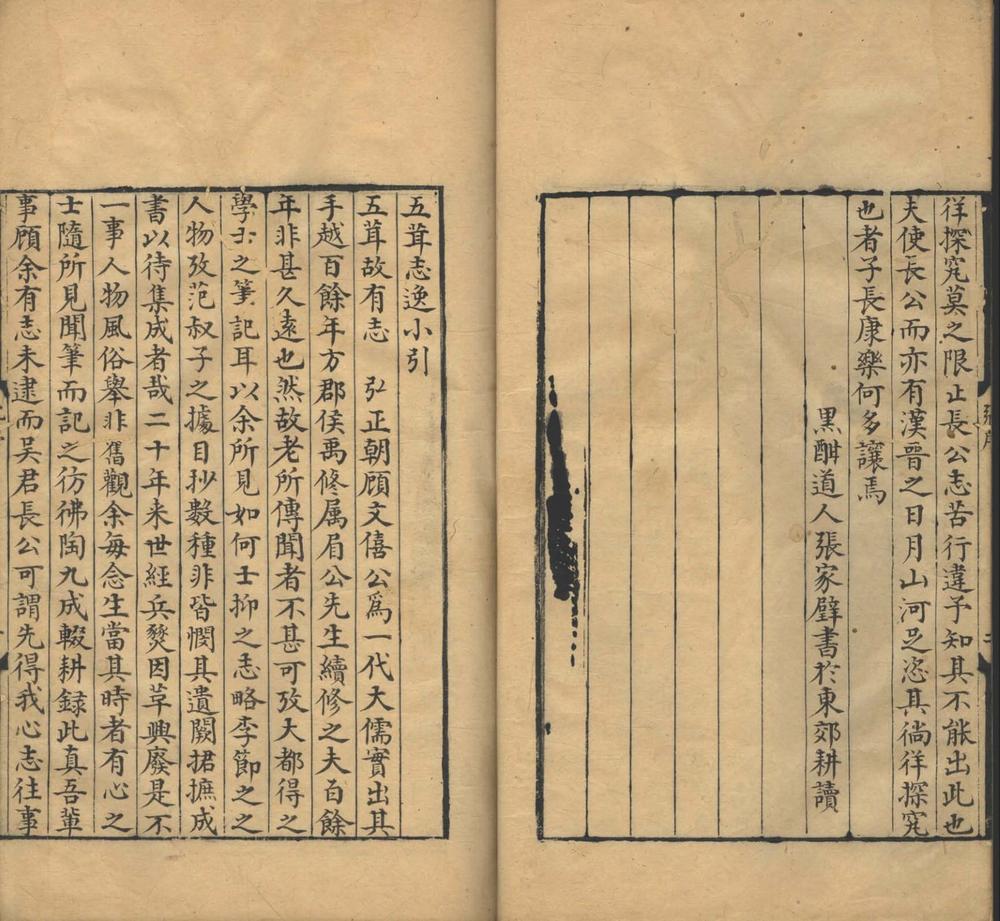 徉探究莫之限止長公志苦行違予知其不能出此也
夫使長公而亦有漢晋之日月山河足恣其徜徉探究
也者子長康樂何多讓焉
黒酣道人張家璧書於東郊耕讀
五茸志逸小引
五茸故有志　弘正朝顧文僖公爲一代大儒實出其
手越百餘年方郡侯禹修属眉公先生續修之夫百餘
年非甚久遠也然故老所傳聞者不甚可攷大都得之
學士之筆記耳以余所見如何士抑之志略李節之之
人物攷范叔子之據目抄數種非皆憫其遺闕捃摭成
書以待集成者哉二十年来世經兵燹因革興廢是不
一事人物風俗舉非舊觀余每念生當其時者有心之
士隨所見聞筆而記之彷彿陶九成輟耕録此真吾輩
事顧余有志未逮而吴君長公可謂先得我心志往事